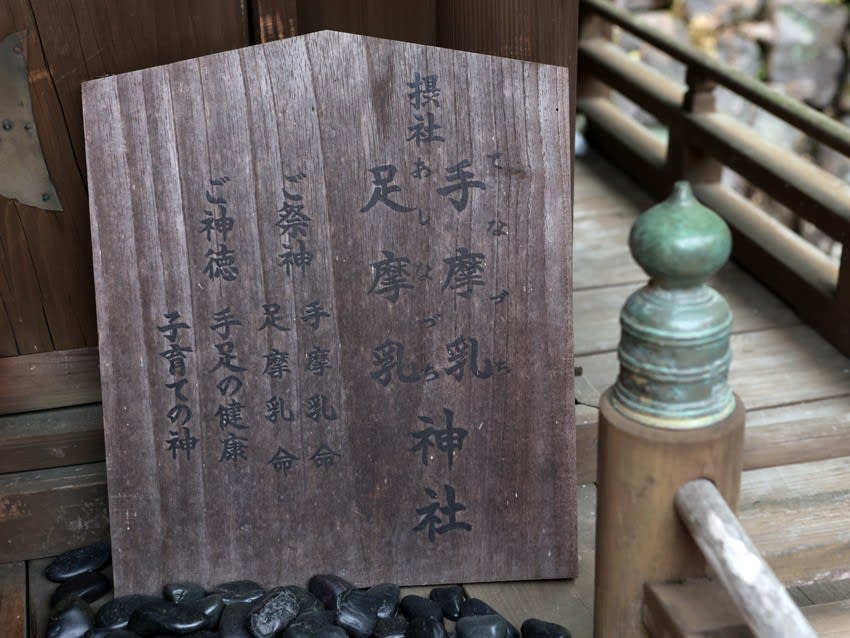 摂社
手摩乳
てなづち
足摩乳
あしなづち
神社
ご祭神
手摩乳命
足摩乳命
ご神徳
手足の健康
子育ての神